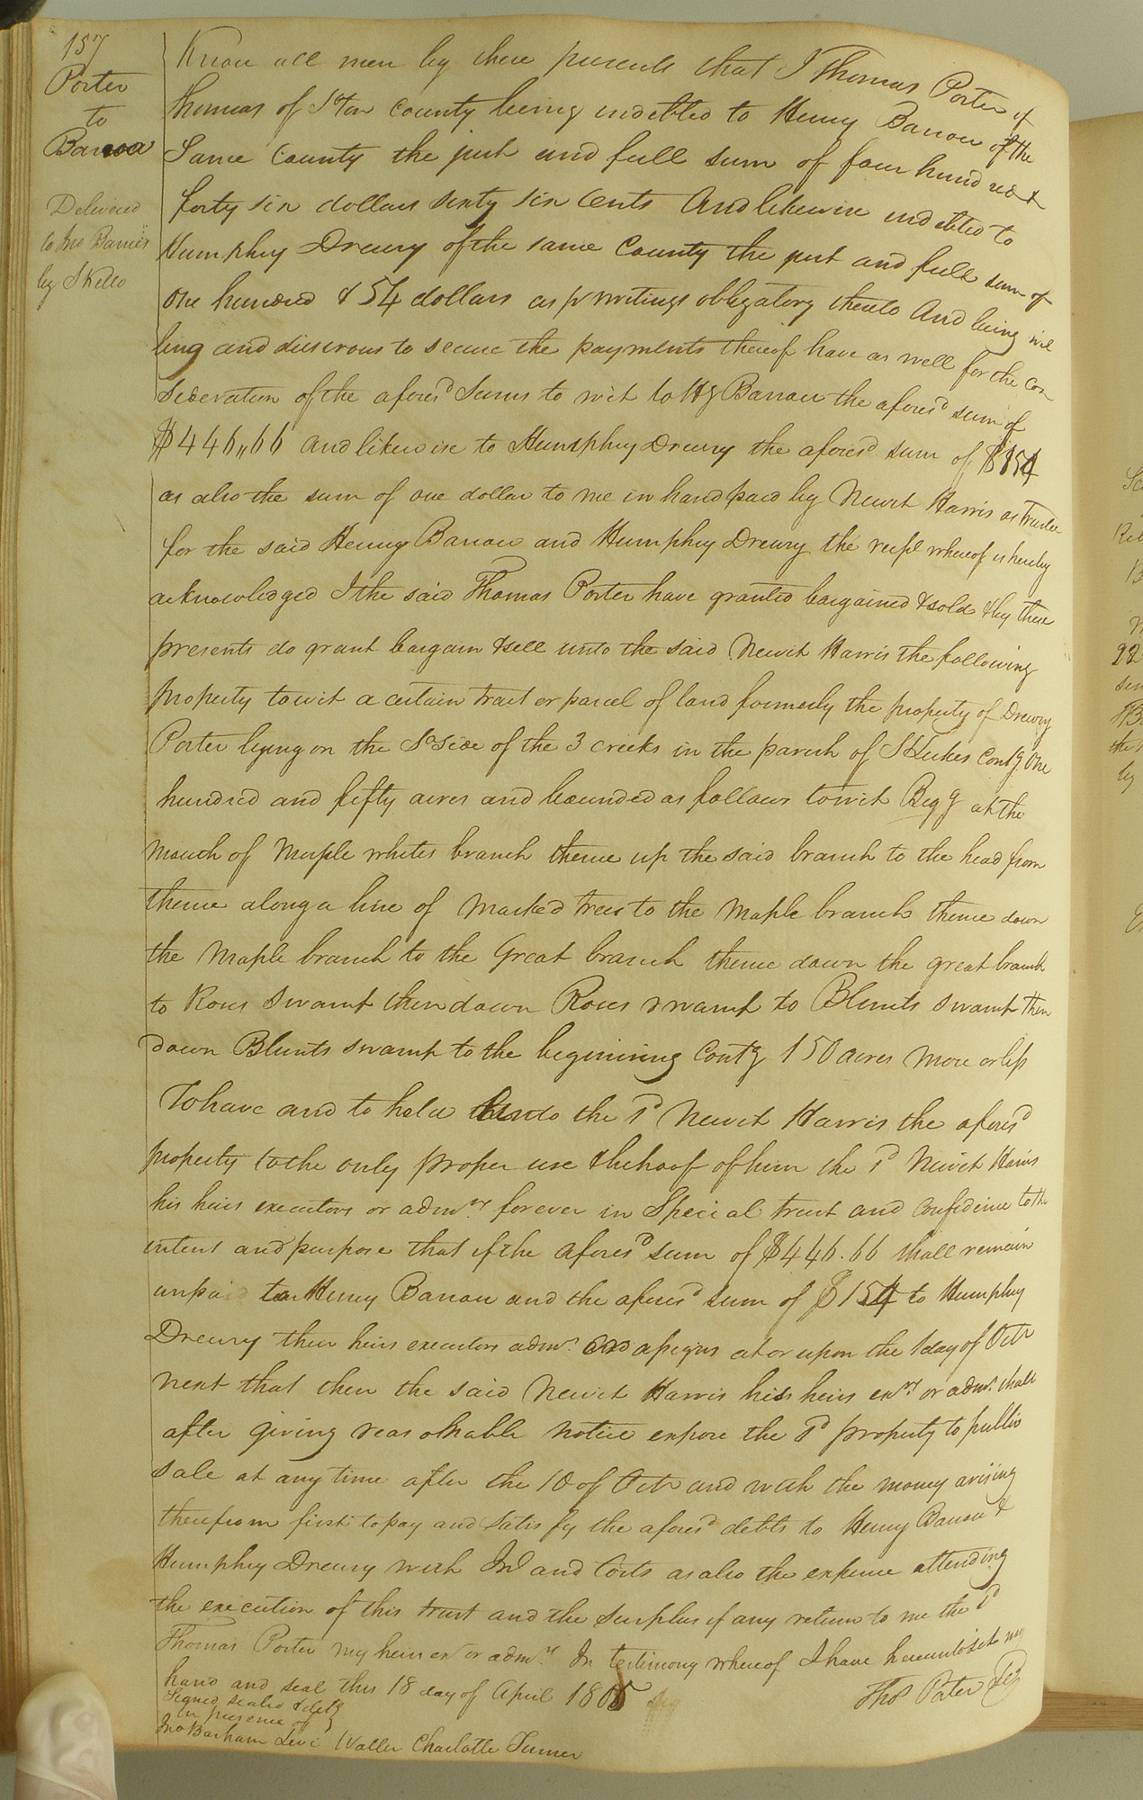 157
Porter
to
Barrow
Delivered
to Jno Barnes
by S Kello
Know all men by these presents that I Thomas Porter of
Thomas of S'ton County being indebted to Henry Barrow of the
Same County the just and full sum of four hundred &
forty six dollars sixty six Cents And likewise indebted to
Humphry Drewry of the same County the just and full sum of
One hundred & 54 dollars as pr writings obligatory thereto And being wil
ling and diserous to secure the payments thereof have as well for the Con
sideration of the afores'd Sums to wit to Hy Barrow the afores'd sum of
$446,,66 and likewise to Humphry Drewry the afores'd sum of $154
as also the sum of one dollar to me in hand paid by Newit Harris as Trustee
for the said Henry Barrow and Humphry Drewry the recpt whereof is hereby
acknowledged I the said Thomas Porter have granted bargained & sold & by these
presents do grant bargain & sell unto the said Newit Harris the following
property towit a certain tract or parcel of land formerly the property of Drewry
Porter lying on the So Side of the 3 creeks in the parish of St Lukes Contg One
hundred and fifty acres and bounded as follows towit Begg at the
mouth of whites branch thence up the said branch to the head from
thence along a line of marked trees to the maple branch thence down
the maple branch to the Great branch thence down the great branch
to Roses Swamp then down Roses swamp to Blunts swamp then
down Blunts swamp to the beginning Contg 150 acres more or less
To have and to hold unto the sd Newit Harris the afores'd
property to the only proper use & behoof of him the sd Newit Harris
his heirs executors or admrs forever in Special trust and confidence to the
intent and purpose that if the afores'd sum of $446.66 shall remain
unpaid to Henry Barrow and the afores'd sum of $154 to Humphry
Drewry their heirs executors admrs and assigns at or upon the 1 day of Octr
next that then the said Newit Harris his heirs exrs or admrs shall
after giving reasonable notice expose the sd property to public
sale at any time after the 10 of Octr and with the money arising
therefrom first to pay and satisfy the afores'd debts to Henry Barrow &
Humphry Drewry with Int and Costs as also the expence attending
the execution of this trust and the surplus if any return to me the sd
Thomas Porter my heirs exr or admrs In testimony whereof I have hereunto set my
hand and seal this 18 day of April 1805
Thos Porter
Signed sealed & deld
in presence of
Jno Barham Levi Waller Charlotte Turner